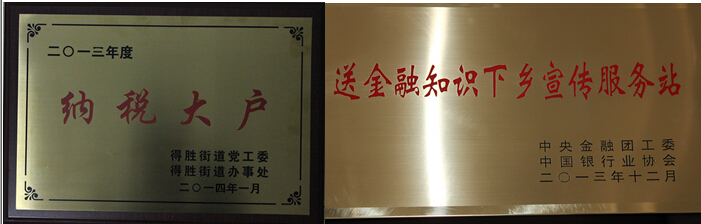 二〇一三年度
纳税大户
得胜街道党工委
得胜街道办事处
二〇一四年一月
送金融知识下乡宣传服务站
中央金融团工委
中国银行业协会
二〇一三年十二月